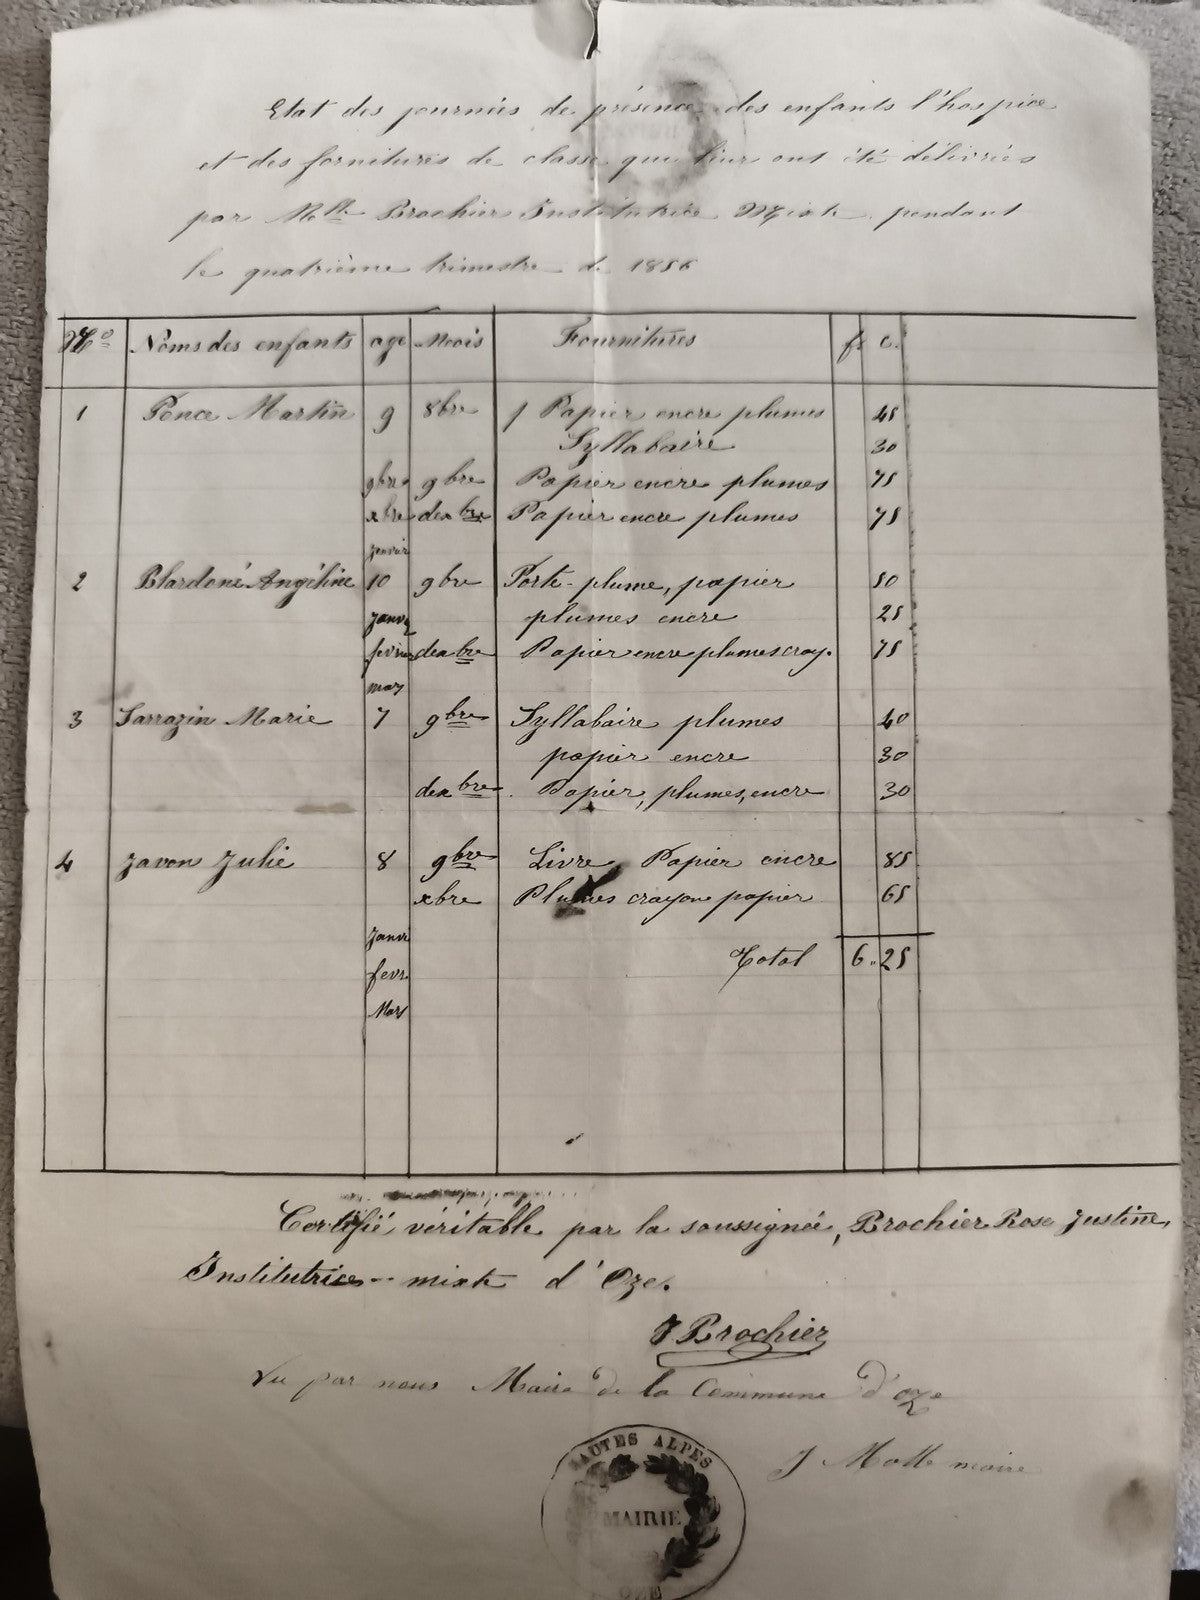 Etat des journées de présence des enfants l'hospice
et des fornitures de classe qui leur ont été délivrées
par Melle Brochier Institutrice Mixte pendant
le quatrième trimestre de 1856
No Noms des enfants age Mois Fournitures fr c.
1 Ponce Martin 9 8bre 1 Papier encre plumes 45
Syllabaire 30
9bre 9bre Papier encre plumes 75
xbre dexbre Papier encre plumes 75
janvir
2 Blardoné Angéline 10 9bre Porte-plume, papier 50
janvr plumes encre 25
fevrier dexbre Papier encre plumes cray. 75
mars
3 Sarrazin Marie 7 9bre Syllabaire plumes 40
papier encre 30
dexbre. Papier, plumes, encre 30
4 Javon Julie 8 9bre Livre Papier encre 85
xbre Plumes crayons papier 65
Janvr
Total 6. 25
fevr.
Mars
Certifié, véritable par la soussignée, Brochier Rose Justine,
Institutrice - mixte d'Oze.
J Brochier
Vu par nous Maire de la Commune d'Oze
J Motte maire
HAUTES ALPES
MAIRIE
OZE